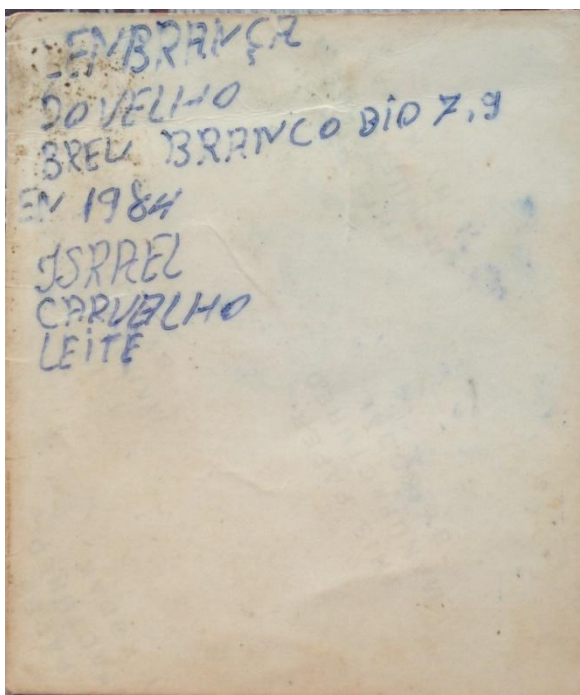 LENBRANÇA
DO VELHO
BREU BRANCO DIO 7,9
EN 1984
ISRAEL
CARVALHO
LEITE